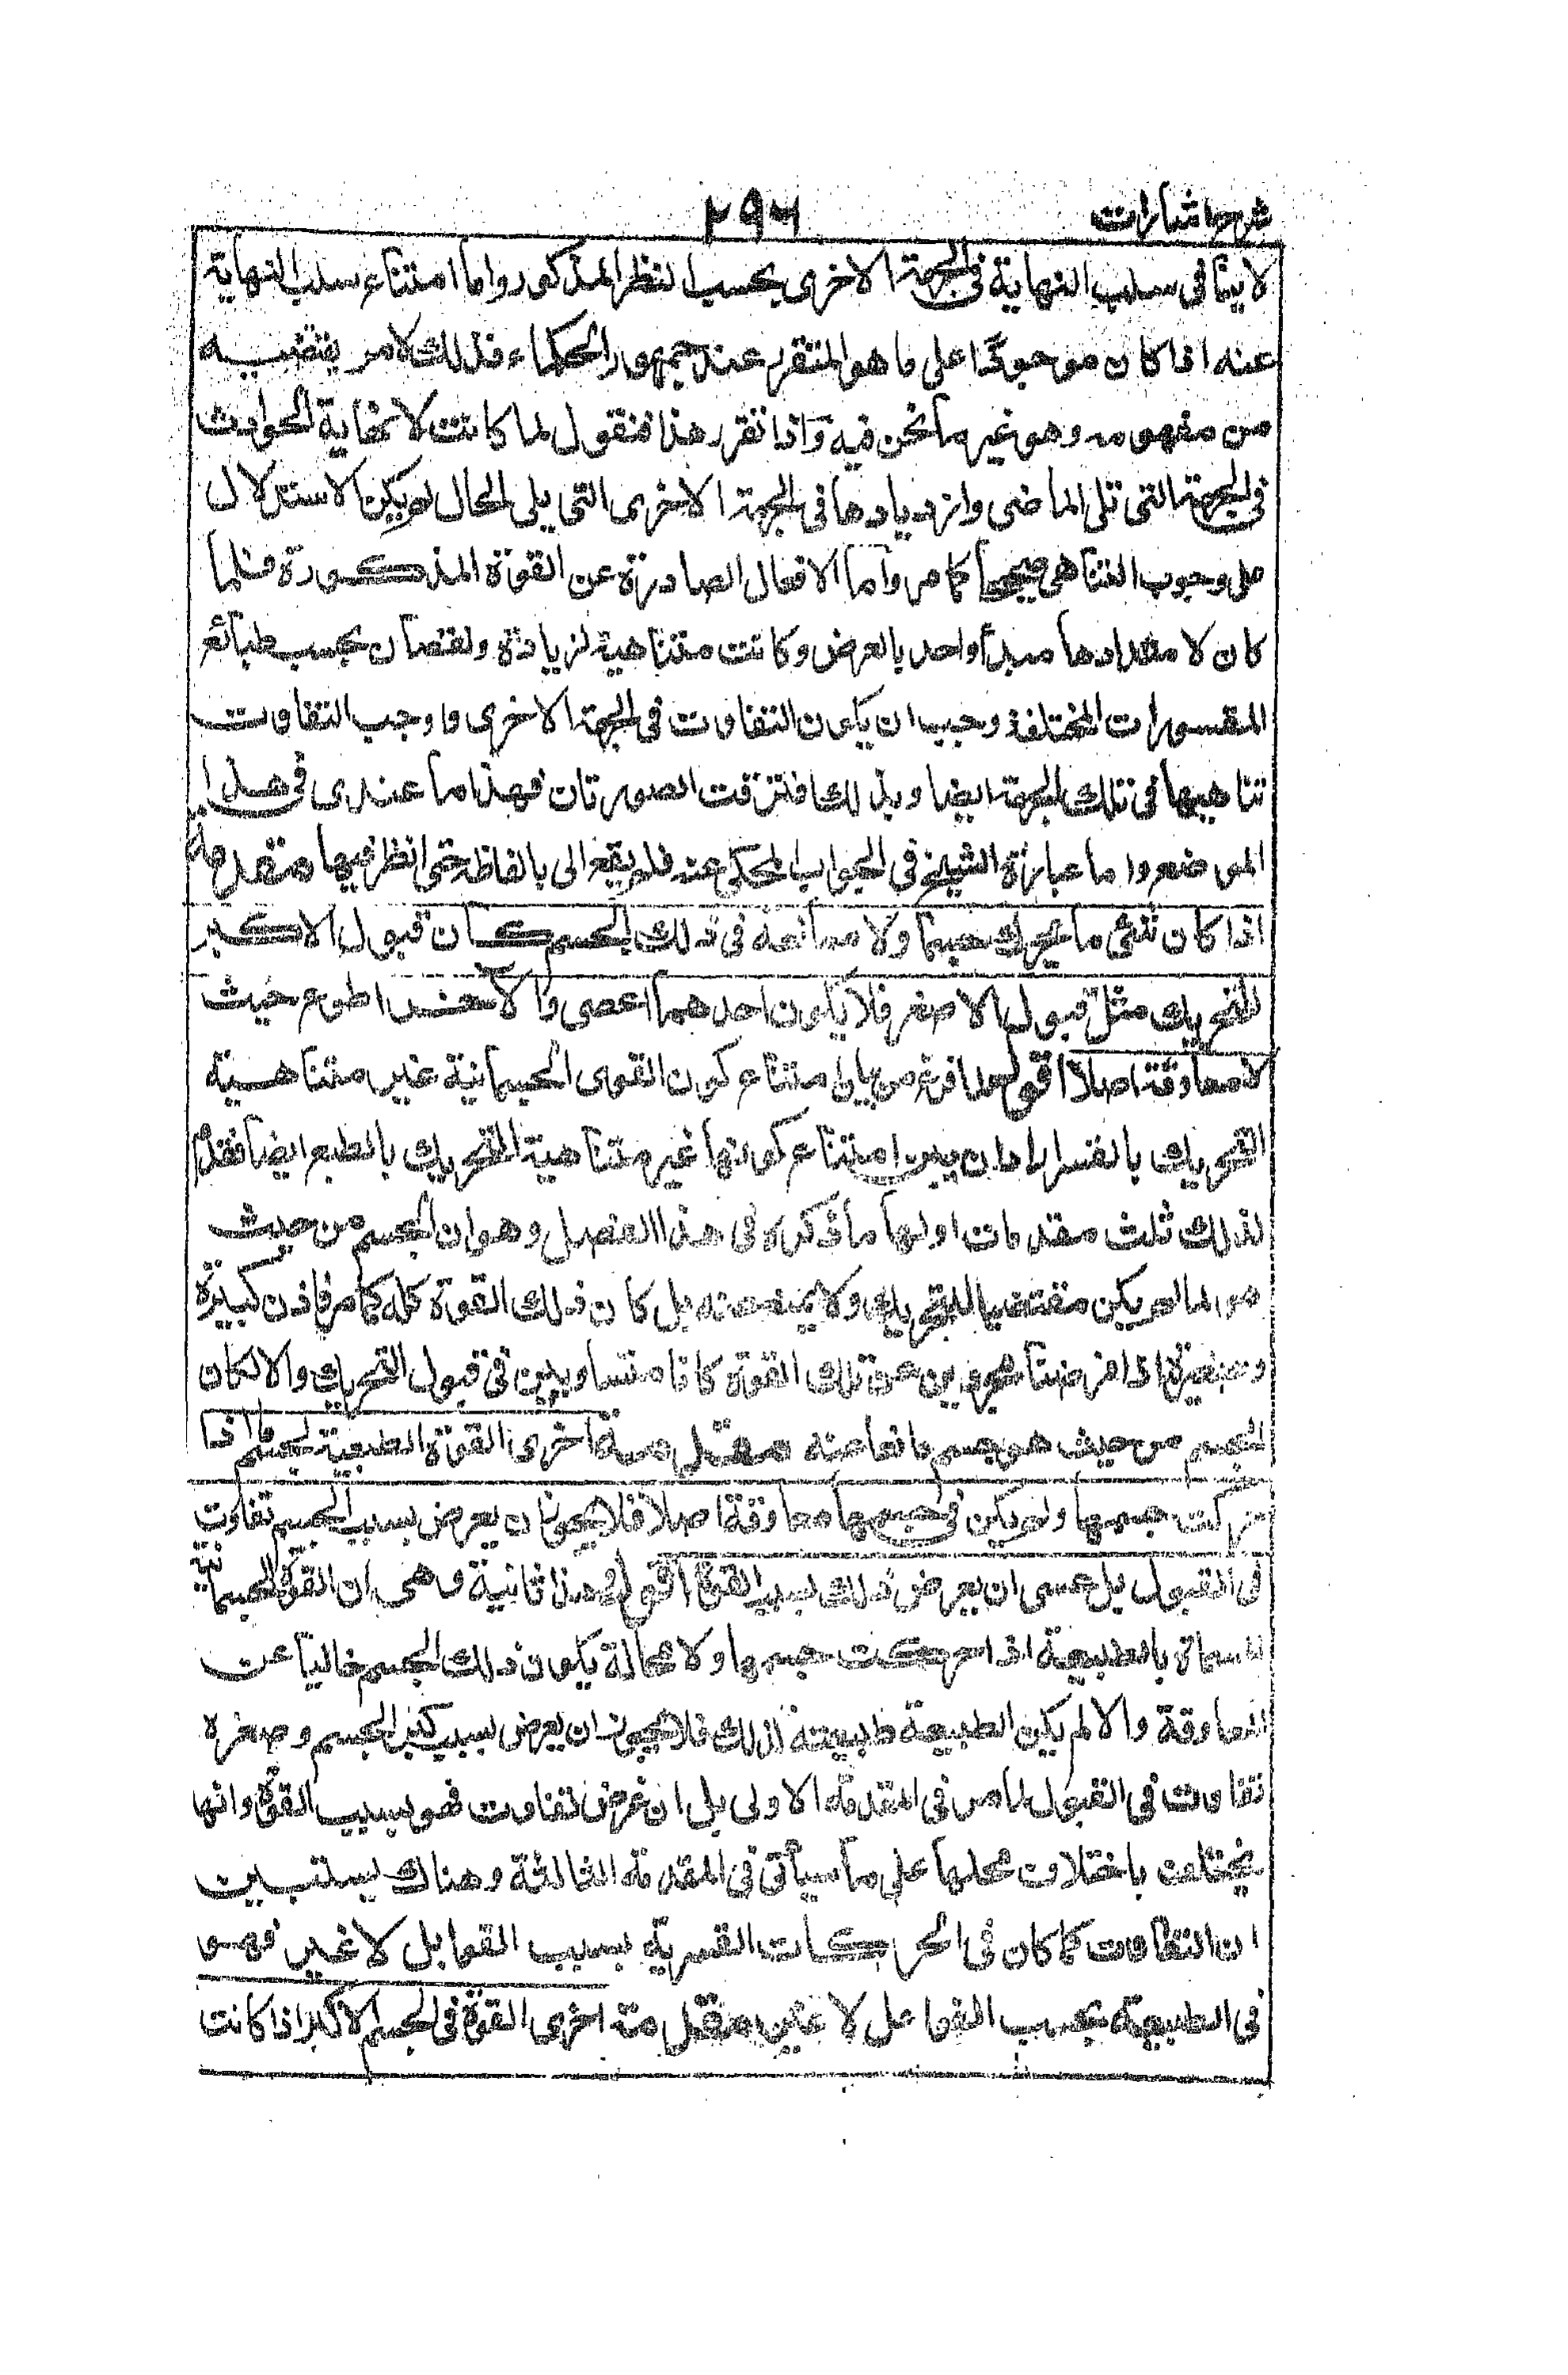 شرح اشارات
٢٩٦
لا ينافى سلب النهاية فى الجهة الاخرى بحسب النظر المذكور واما امتناع سلب النهاية
عنه اذا كان موجودا على ما هو المتقرر عند جمهور الحكماء فذلك لامر يقتضيه
من مفهومه وهو غير ما نحن فيه واذا تقرر هذا فنقول لما كانت لا نهاية الحوادث
فى الجهة التى تلى الماضى وازديادها فى الجهة الاخرى التى يلى الحال لم يكن الاستدلال
على وجوب التناهى صحيحا كما مر واما الافعال الصادرة عن القوة المذكورة فلما
كان لامتدادها مبدأ واحد بالعرض وكانت متناهية لزيادة ونقصان بحسب طبائع
المقسورات المختلفة وجب ان يكون التفاوت فى الجهة الاخرى واوجب التفاوت
تناهيها فى تلك الجهة ايضا وبذلك افترقت الصورتان فهذا ما عندى فى هذا
الموضع واما عبارة الشيخ فى الجواب المحكى عنه فلم يقع الى بالفاظه حتى انظر فيها مقدمة
اذا كان شئ ما يحرك جسما ولا ممانعة فى ذلك الجسم كان قبول الاكبر
للتحريك مثل قبول الاصغر فلا يكون احدهما اعصى والاخر اطوع حيث
لا معاوقة اصلا اقول لما فرغ من بيان امتناع كون القوى الجسمانية غير متناهية
التحريك بالقسر اراد ان يبين امتناع كونها غير متناهية التحريك بالطبع ايضا فقدم
لذلك ثلث مقدمات اولها ما ذكره فى هذا الفصل وهو ان الجسم من حيث
هو لما لم يكن مقتضيا للتحريك ولا يمنع عنه بل كان ذلك القوة كله كما مر فاذن كبيره
وصغيره اذا فرضتا مجردين عن تلك القوة كانا متساويين فى قبول التحريك والا لكان
الجسم من حيث هو جسم مانعا عنه مقدمة اخرى القوة الطبيعية لجسم ما اذا
حركت جسمها ولم يكن فى جسمها معاوقة اصلا فلا يجوز ان يعرض بسبب الجسم تفاوت
فى القبول بل عسى ان يعرض ذلك بسبب القوة اقول هذا ثانية وهى ان القوة الجسمانية
المسماة بالطبيعة اذا حركت جسمها ولا محالة يكون ذلك الجسم خاليا عن
المعاوقة والا لم يكن الطبيعة طبيعة لذلك فلا يجوز ان يعرض بسبب كبر الجسم وصغره
تفاوت فى القبول لما مر فى المقدمة الاولى بل ان عرض تفاوت فهو بسبب القوة وانها
يختلف باختلاف محلها على ما سيأتى فى المقدمة الثالثة وهناك يستبين
ان التفاوت كما كان فى الحركات القسرية بسبب القوابل لا غير فهو
فى الطبيعية بحسب الفواعل لا غير مقدمة اخرى القوة فى الجسم الاكبر اذا كانت